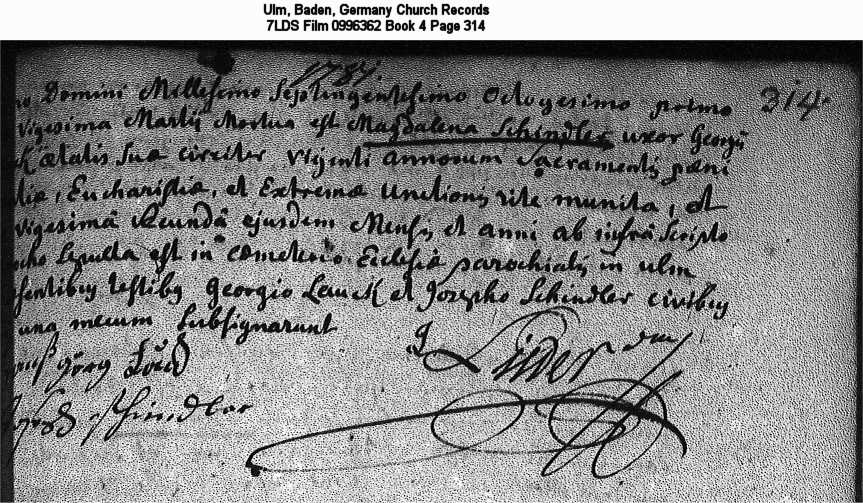 Ulm, Baden, Germany Church Records
7LDS Film 0996362 Book 4 Page 314
1781.
Domini Millesimo Septingentesimo Octogesimo primo 314.
Vigesima Martij Mortua est Magdalena Schindler uxor Georgij
ætatis suæ circiter viginti annorum Sacramentis pæni
tiæ, Eucharistiæ, et Extremæ Unctionis rite munita, et
vigesimâ secundâ ejusdem Mensis et anni ab infrâ scripto
sepulta est in cœmeterio Ecclesiæ parochialis in ulm
sentibus testibus Georgio Lauck et Josepho Schindler civibus
una mecum subsignarunt
görg
schindler